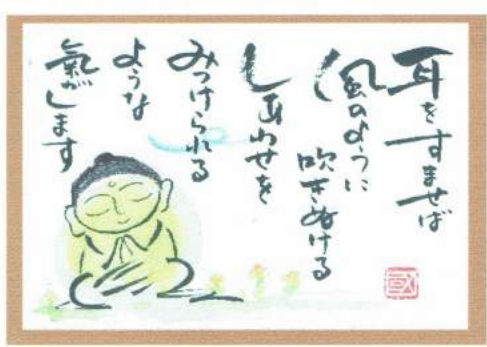 耳をすませば
風のように
吹きぬける
しあわせを
みつけられる
ような
氣がします